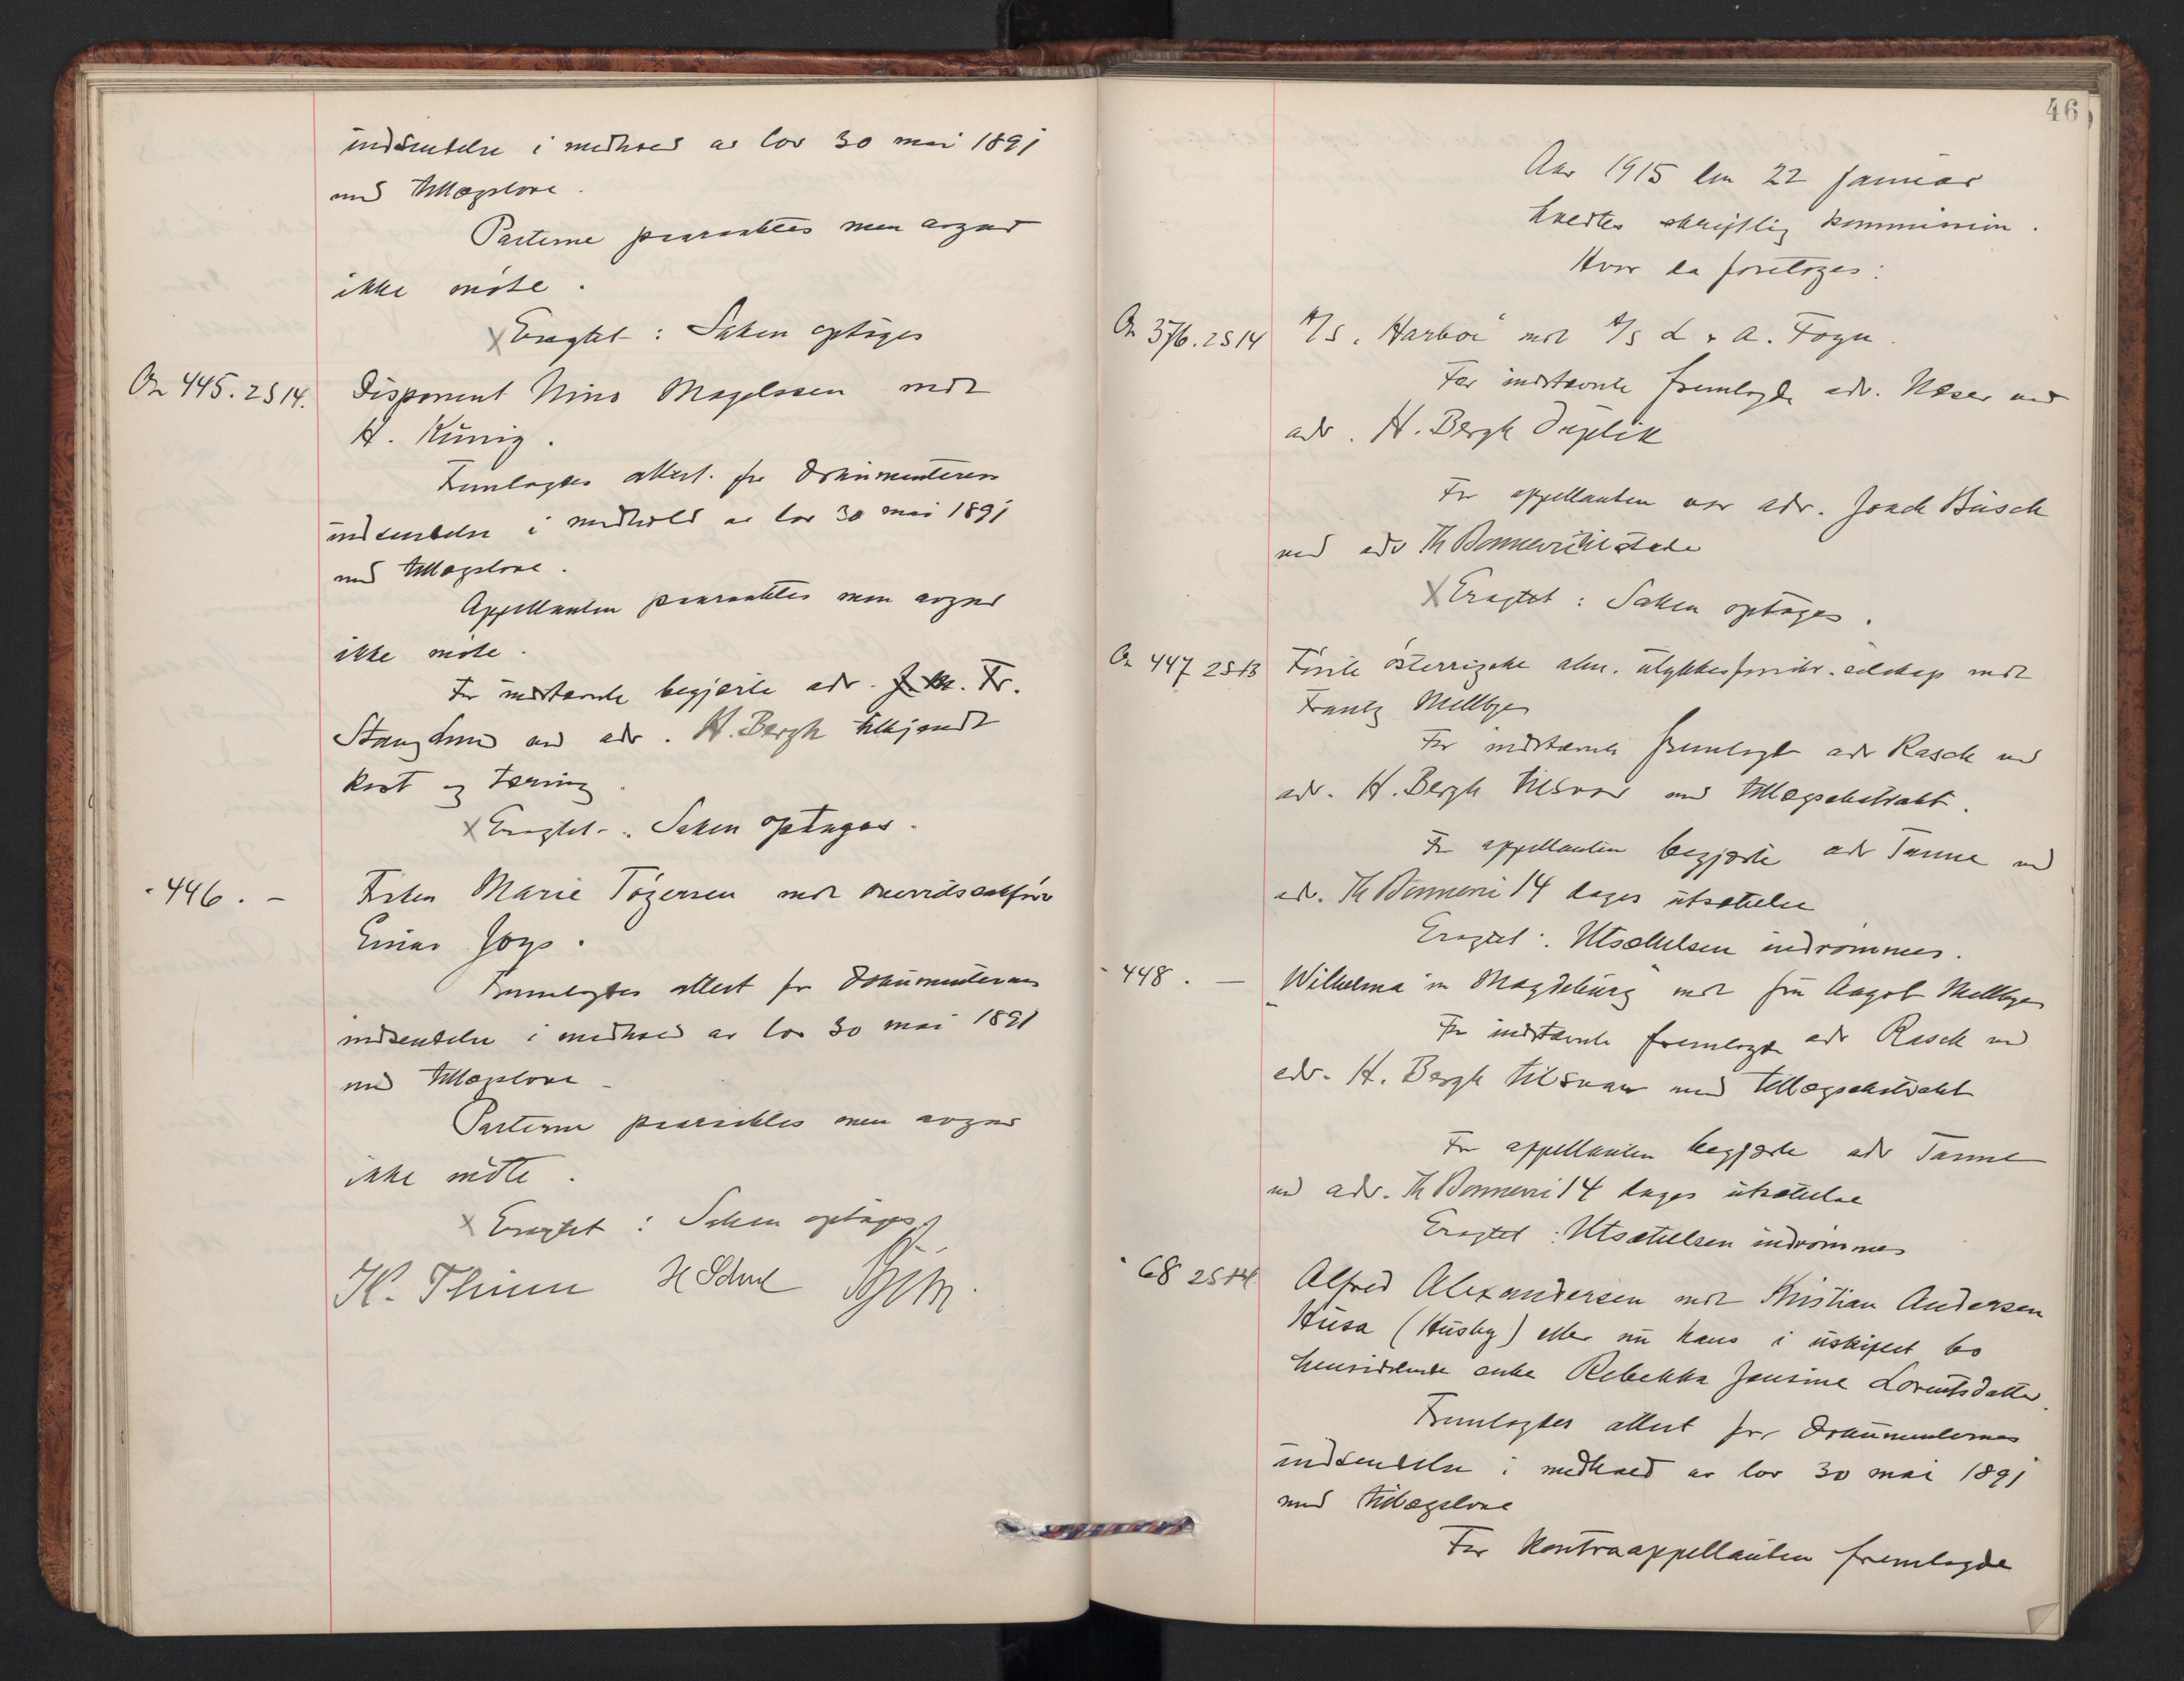 indsendelse i medhold av lov 30 mai 1891
med tillægslove.
Parterne paaraabtes men avgav
ikke møte.
Eragtet: Saken optages
On 445. 2S14.
Disponent Nino Magelssen mot
H. König.
Fremlagdes attest for dokumenternes
indsendelse i medhold av lov 30 mai 1891
med tillægslove.
Appellanten paaraabtes men avgav
ikke møte.
For indstævnte begjærte adv. Fr.
Stang Lund ved adv. H. Bergh tilkjendt
kost og tæring.
Eragtet: Saken optages.
- 446. -
Frøken Marie Tøgersen mot overretssakfører
Einar Joys.
Fremlagdes attest for dokumenternes
indsendelse i medhold av lov 30 mai 1891
med tillægslove
Parterne paaraabtes men avgav
ikke møte.
Eragtet: Saken optages
K. Thinn
46
Aar 1915 den 22 januar
holdtes skriftlig kommission.
Hvor da foretages:
On 376. 2S14
A/S "Harboe" mot A/S L. & A. Fogn.
For indstævnte fremlagde adv. Næser ved
adv. H. Bergh Duplik
For appellanten var adv. Joach Busch
ved adv Th Bonnevie tilstede
Eragtet: Saken optages.
On 447 2S13
Første österrigske alm. ulykkesforsikr. selskap mot
Frantz Mellbye
For indstævnte fremlagde adv Rasch ved
adv. H. Bergh tilsvar med tillægsekstrakt.
For appellanten begjærte adv Tanne ved
adv. Th Bonnevie 14 dages utsættelse
Eragtet: Utsættelsen indrømmes.
- 448. -
"Wilhelma in Magdeburg" mot fru Aagot Mellbye
For indstævnte fremlagde adv Rasch ved
adv. H. Bergh tilsvar med tillægsekstrakt
For appellanten begjærte adv Tanne
ved adv. Th Bonnevie 14 dages utsættelse
Eragtet: Utsættelsen indrømmes
" 68 2S14
Alfred Alexandersen mot Kristian Andersen
Husa (Husby) eller nu hans i uskiftet bo
hensiddende enke Rebekka Jensine Lorentsdatter.
Fremlagdes attest for dokumenternes
indsendelse i medhold av lov 30 mai 1891
med tillægslove
For kontraappellanten fremlagde